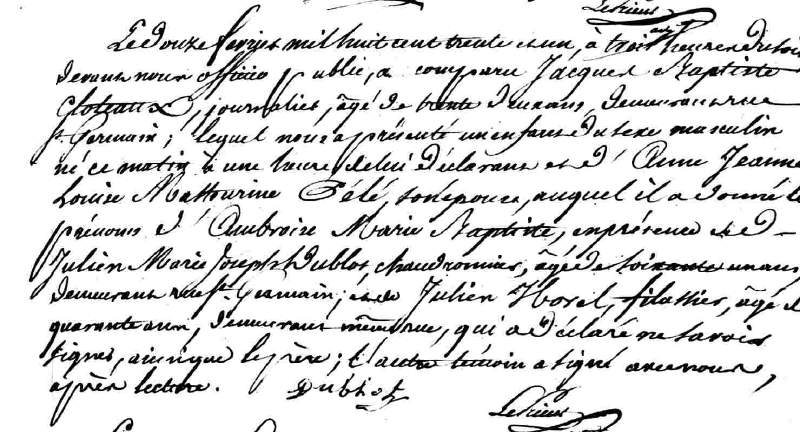 Le douze février mil huit cent trente et un, à trois heures du soir
devant nous officier public, a comparu Jacques Baptiste
Gloteaux, journalier, âgé de trente deux ans, demeurant rue
St. Germain; lequel nous a présenté un enfant du sexe masculin
né ce matin à une heure, de lui déclarant et d'Anne Jeanne
Louise Mathurine Pélé, son épouse, auquel il a donné les
prénoms d'Ambroise Marie Baptiste, en présence de
Julien Marie Joseph Dublot, chaudronnier, âgé de soixante un ans,
demeurant rue St. Germain; et de Julien Horel, filassier, âgé de
quarante ans, demeurant même rue, qui a déclaré ne savoir
signer, ainsi que le père; l'autre témoin a signé avec nous,
après lecture.
Dublot